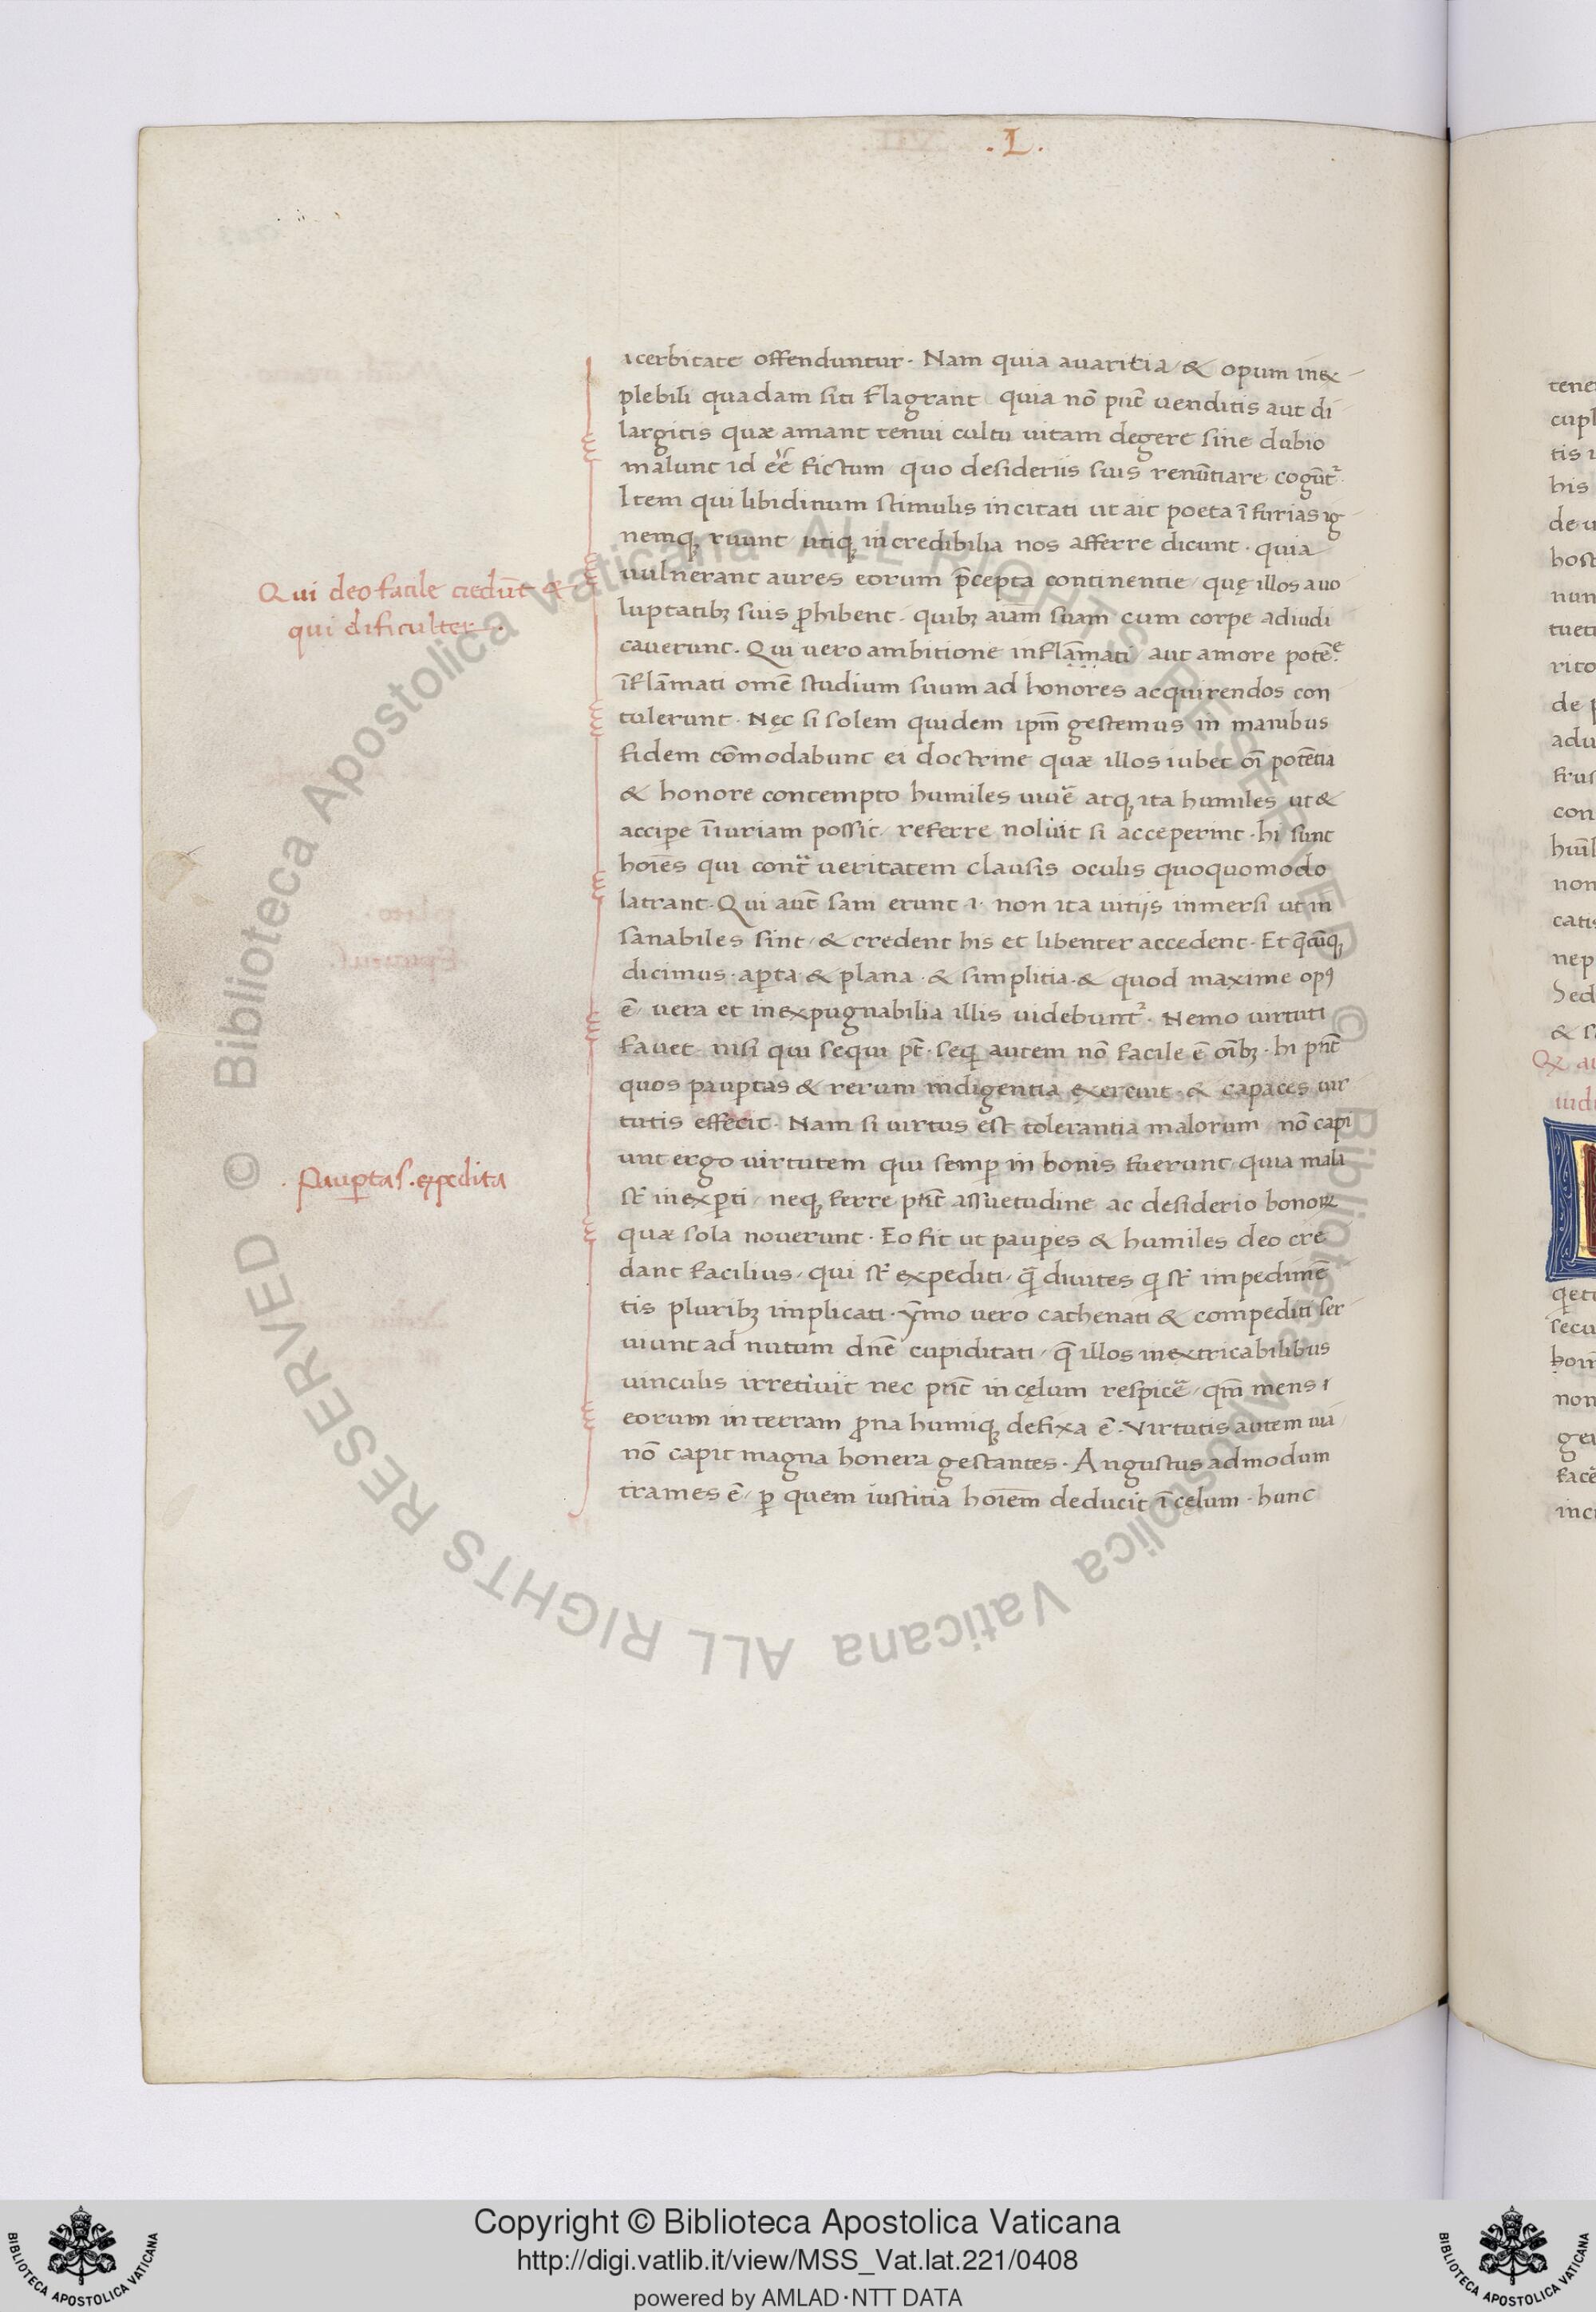 .L.
acerbitate offenduntur. Nam quia avaritia & opum inex
plebili quadam siti flagrant quia nō pn̄t venditis aut di
largitis quæ amant tenui cultu vitam degere sine dubio
malunt id eē fictum quo desideriis suis renūtiare cogūt᷑.
Item qui libidinum stimulis incitati ut ait poeta ī furias ig
nemqꝫ ruunt utiqꝫ incredibilia nos afferre dicunt. quia
vulnerant aures eorum p̄cepta continentie quę illos a vo
luptatibꝫ suis ꝓhibent. quibꝫ aīam suam cum corpe adiudi
caverunt. Qui vero ambitione inflāmati aut amore potē.e
īflāmati omē studium suum ad honores acquirendos con
tulerunt. Nęc si solem quidem ipm̄ gestemus in manibus
fidem cōmodabunt ei doctrine quæ illos iubet oī potētia
& honore contempto humiles vivē atqꝫ ita humiles ut &
accipe īiuriam possit referre nolūit si acceperint. hi sunt
hoīes qui cont̄ veritatem clausis oculis quoquomodo
latrant. Qui aūt sani erunt .i. non ita vitijs inmersi ut in
sanabiles sint & credent his et libenter accedent. Et q̄cūqꝫ
dicimus. aꝑta & plana & simplitia & quod maxime opꝰ
ē vera et inexpugnabilia illis videbunt᷑. Nemo virtuti
favet nisi qui sequi pt̄. seqꝫ autem nō facile ē oībꝫ. hi pn̄t
quos pauꝑtas & rerum indigentia exercuit & capaces vir
tutis effecit. Nam si virtus est tolerantia malorum nō capi
unt ergo virtutem qui semꝑ in bonis fuerunt quia mala
st̄ inexꝑti neqꝫ ferre pn̄t assuetudine ac desiderio bonoꝝ
quæ sola noverunt. Eo fit ut pauꝑes & humiles deo cre
dant facilius qui st̄ expediti q̄ divites q st̄ impedimē
tis pluribꝫ implicati. ȳmo vero cathenati & compediti ser
viunt ad nutum dn̄e cupiditati q̄ illos inextricabilibus
vinculis irretivit nec pn̄t in cęlum respicē qm̄ mens
eorum in terram ꝓna humiqꝫ defixa ē. Virtutis autem via
nō capit magna honera gestantes. Angustus admodum
trames ē ꝑ quem iustitia hoīem deducit ī cęlum. hunc
Qui deo facile credūt &
qui dificulter.
. Pauꝑtas. expedita
Copyright © Biblioteca Apostolica Vaticana
http://digi.vatlib.it/view/MSS_Vat.lat.221/0408
powered by AMLAD·NTT DATA
© Biblioteca Apostolica Vaticana ALL RIGHTS RESERVED
© Biblioteca Apostolica Vaticana ALL RIGHTS RESERVED
BIBLIOTECA APOSTOLICA VATICANA
BIBLIOTECA APOSTOLICA VATICANA